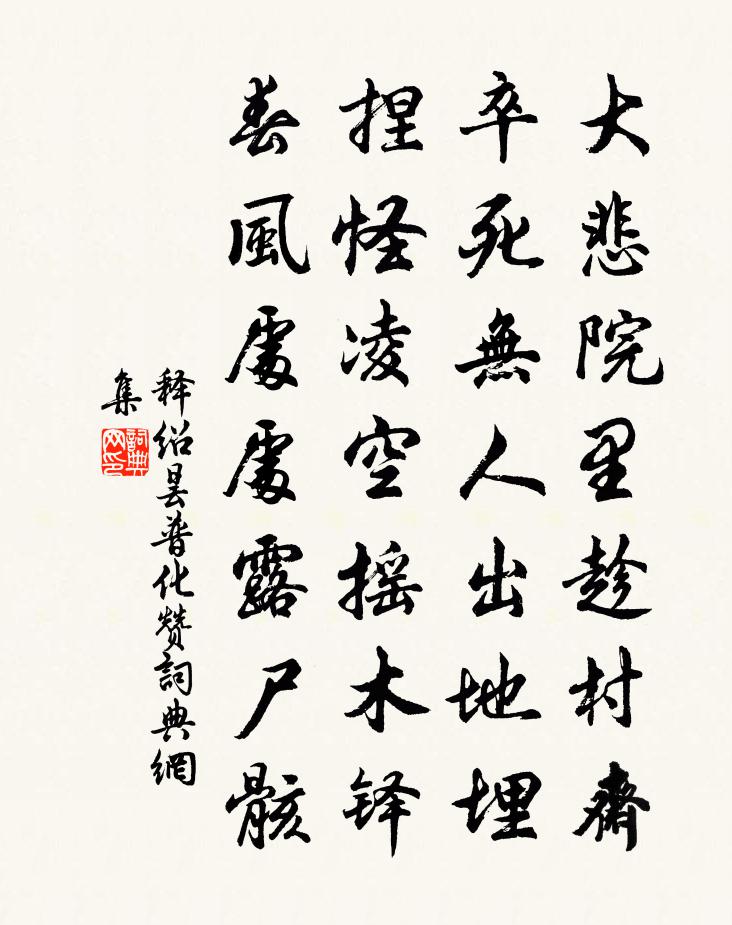 大悲院里趁村齋
卒死無人出地埋
捏怪凌空摇木铎
春風處處露尸骸
释绍昙普化赞詞典網
集
詞典网印